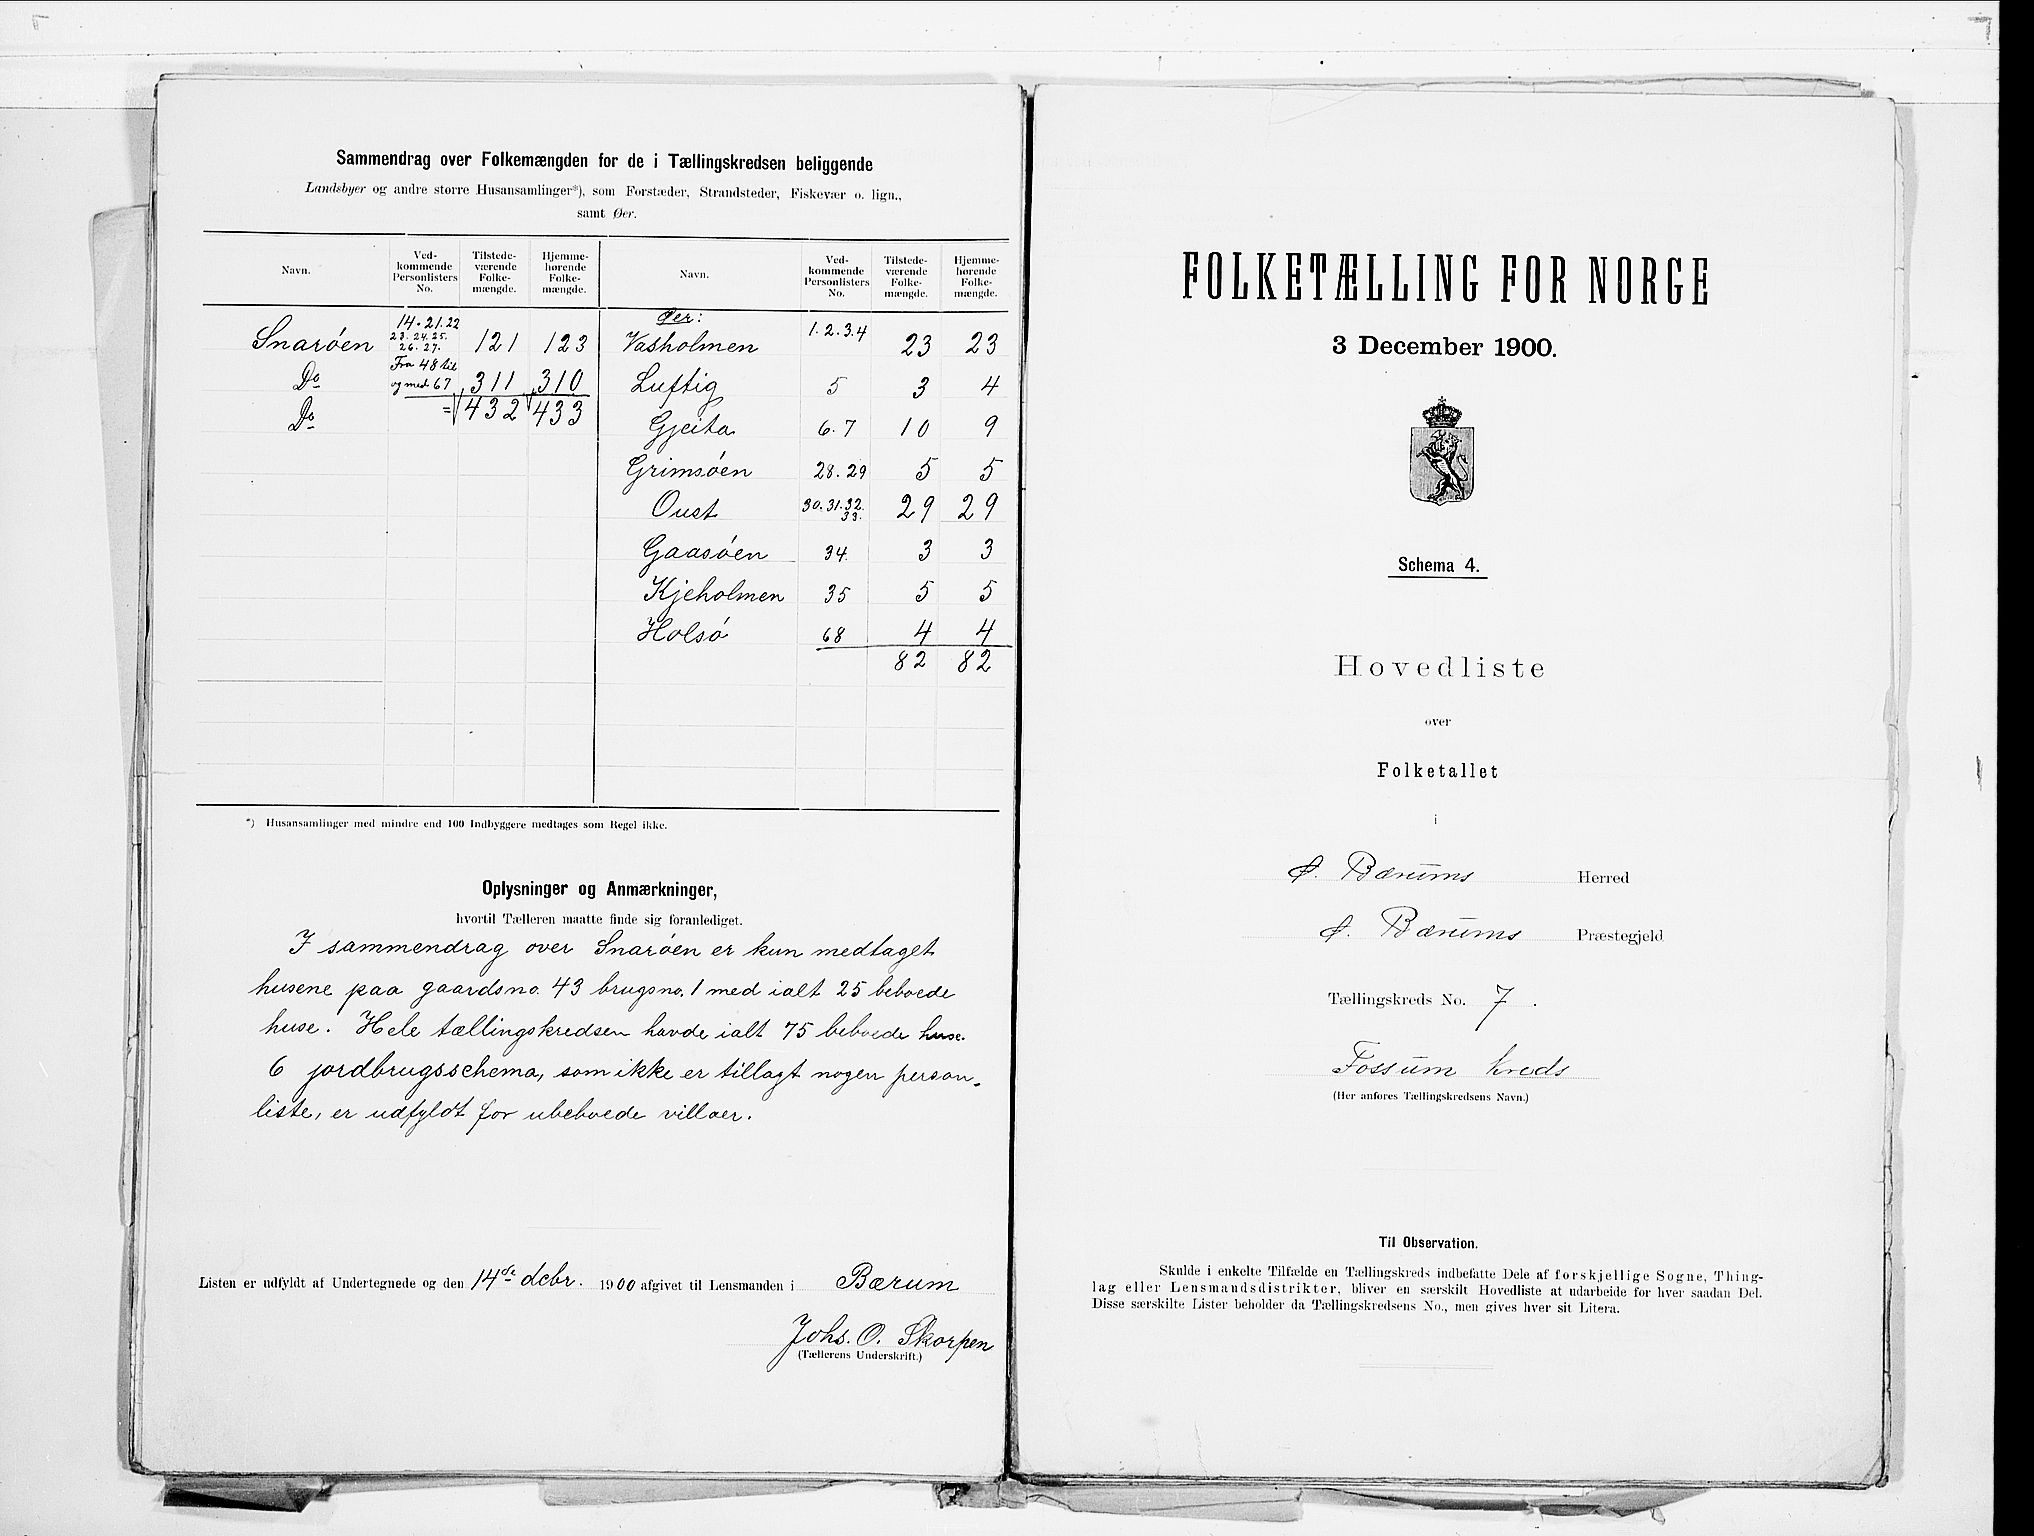 Sammendrag over Folkemængden for de i Tællingskredsen beliggende
Landsbyer og andre større Husansamlinger*), som Forstæder, Strandsteder, Fiskevær o. lign.,
samt Øer.
Navn. Ved-kommende Personlisters No. Tilstede-værende Folke-mængde. Hjemme-hørende Folke-mængde.
Snarøen 14. 21. 22 23. 24. 25. 26. 27. 121 123
Do Fra 48 til og med 67 311 310
Do = 432 433
Navn. Ved-kommende Personlisters No. Tilstede-værende Folke-mængde. Hjemme-hørende Folke-mængde.
Øer:
Vasholmen 1. 2. 3. 4 23 23
Luftig 5 3 4
Gjeita 6. 7 10 9
Grimsøen 28. 29 5 5
Oust 30. 31. 32. 33. 29 29
Gaasøen 34. 3 3
Kjeholmen 35 5 5
Holsø 68 4 4
82 82
*) Husansamlinger med mindre end 100 Indbyggere medtages som Regel ikke.
Oplysninger og Anmærkninger,
hvortil Tælleren maatte finde sig foranlediget.
I sammendrag over Snarøen er kun medtaget
husene paa gaardsno. 43 brugsno. 1 med ialt 25 beboede
huse. Hele tællingskredsen havde ialt 75 beboede huse.
6 jordbrugsschema, som ikke er tillagt nogen person-
liste, er udfyldt for ubeboede villaer.
Listen er udfyldt af Undertegnede og den 14de debr. 1900 afgivet til Lensmanden i Bærum
Johs. O. Skorpen
(Tællerens Underskrift.)
FOLKETÆLLING FOR NORGE
3 December 1900.
Schema 4.
Hovedliste
over
Folketallet
i
Ø. Bærums Herred
Ø. Bærums Præstegjeld
Tællingskreds No. 7.
Fossum kreds
(Her anføres Tællingskredsens Navn.)
Til Observation.
Skulde i enkelte Tilfælde en Tællingskreds indbefatte Dele af forskjellige Sogne, Thing-
lag eller Lensmandsdistrikter, bliver en særskilt Hovedliste at udarbeide for hver saadan Del.
Disse særskilte Lister beholder da Tællingskredsens No., men gives hver sit Litera.